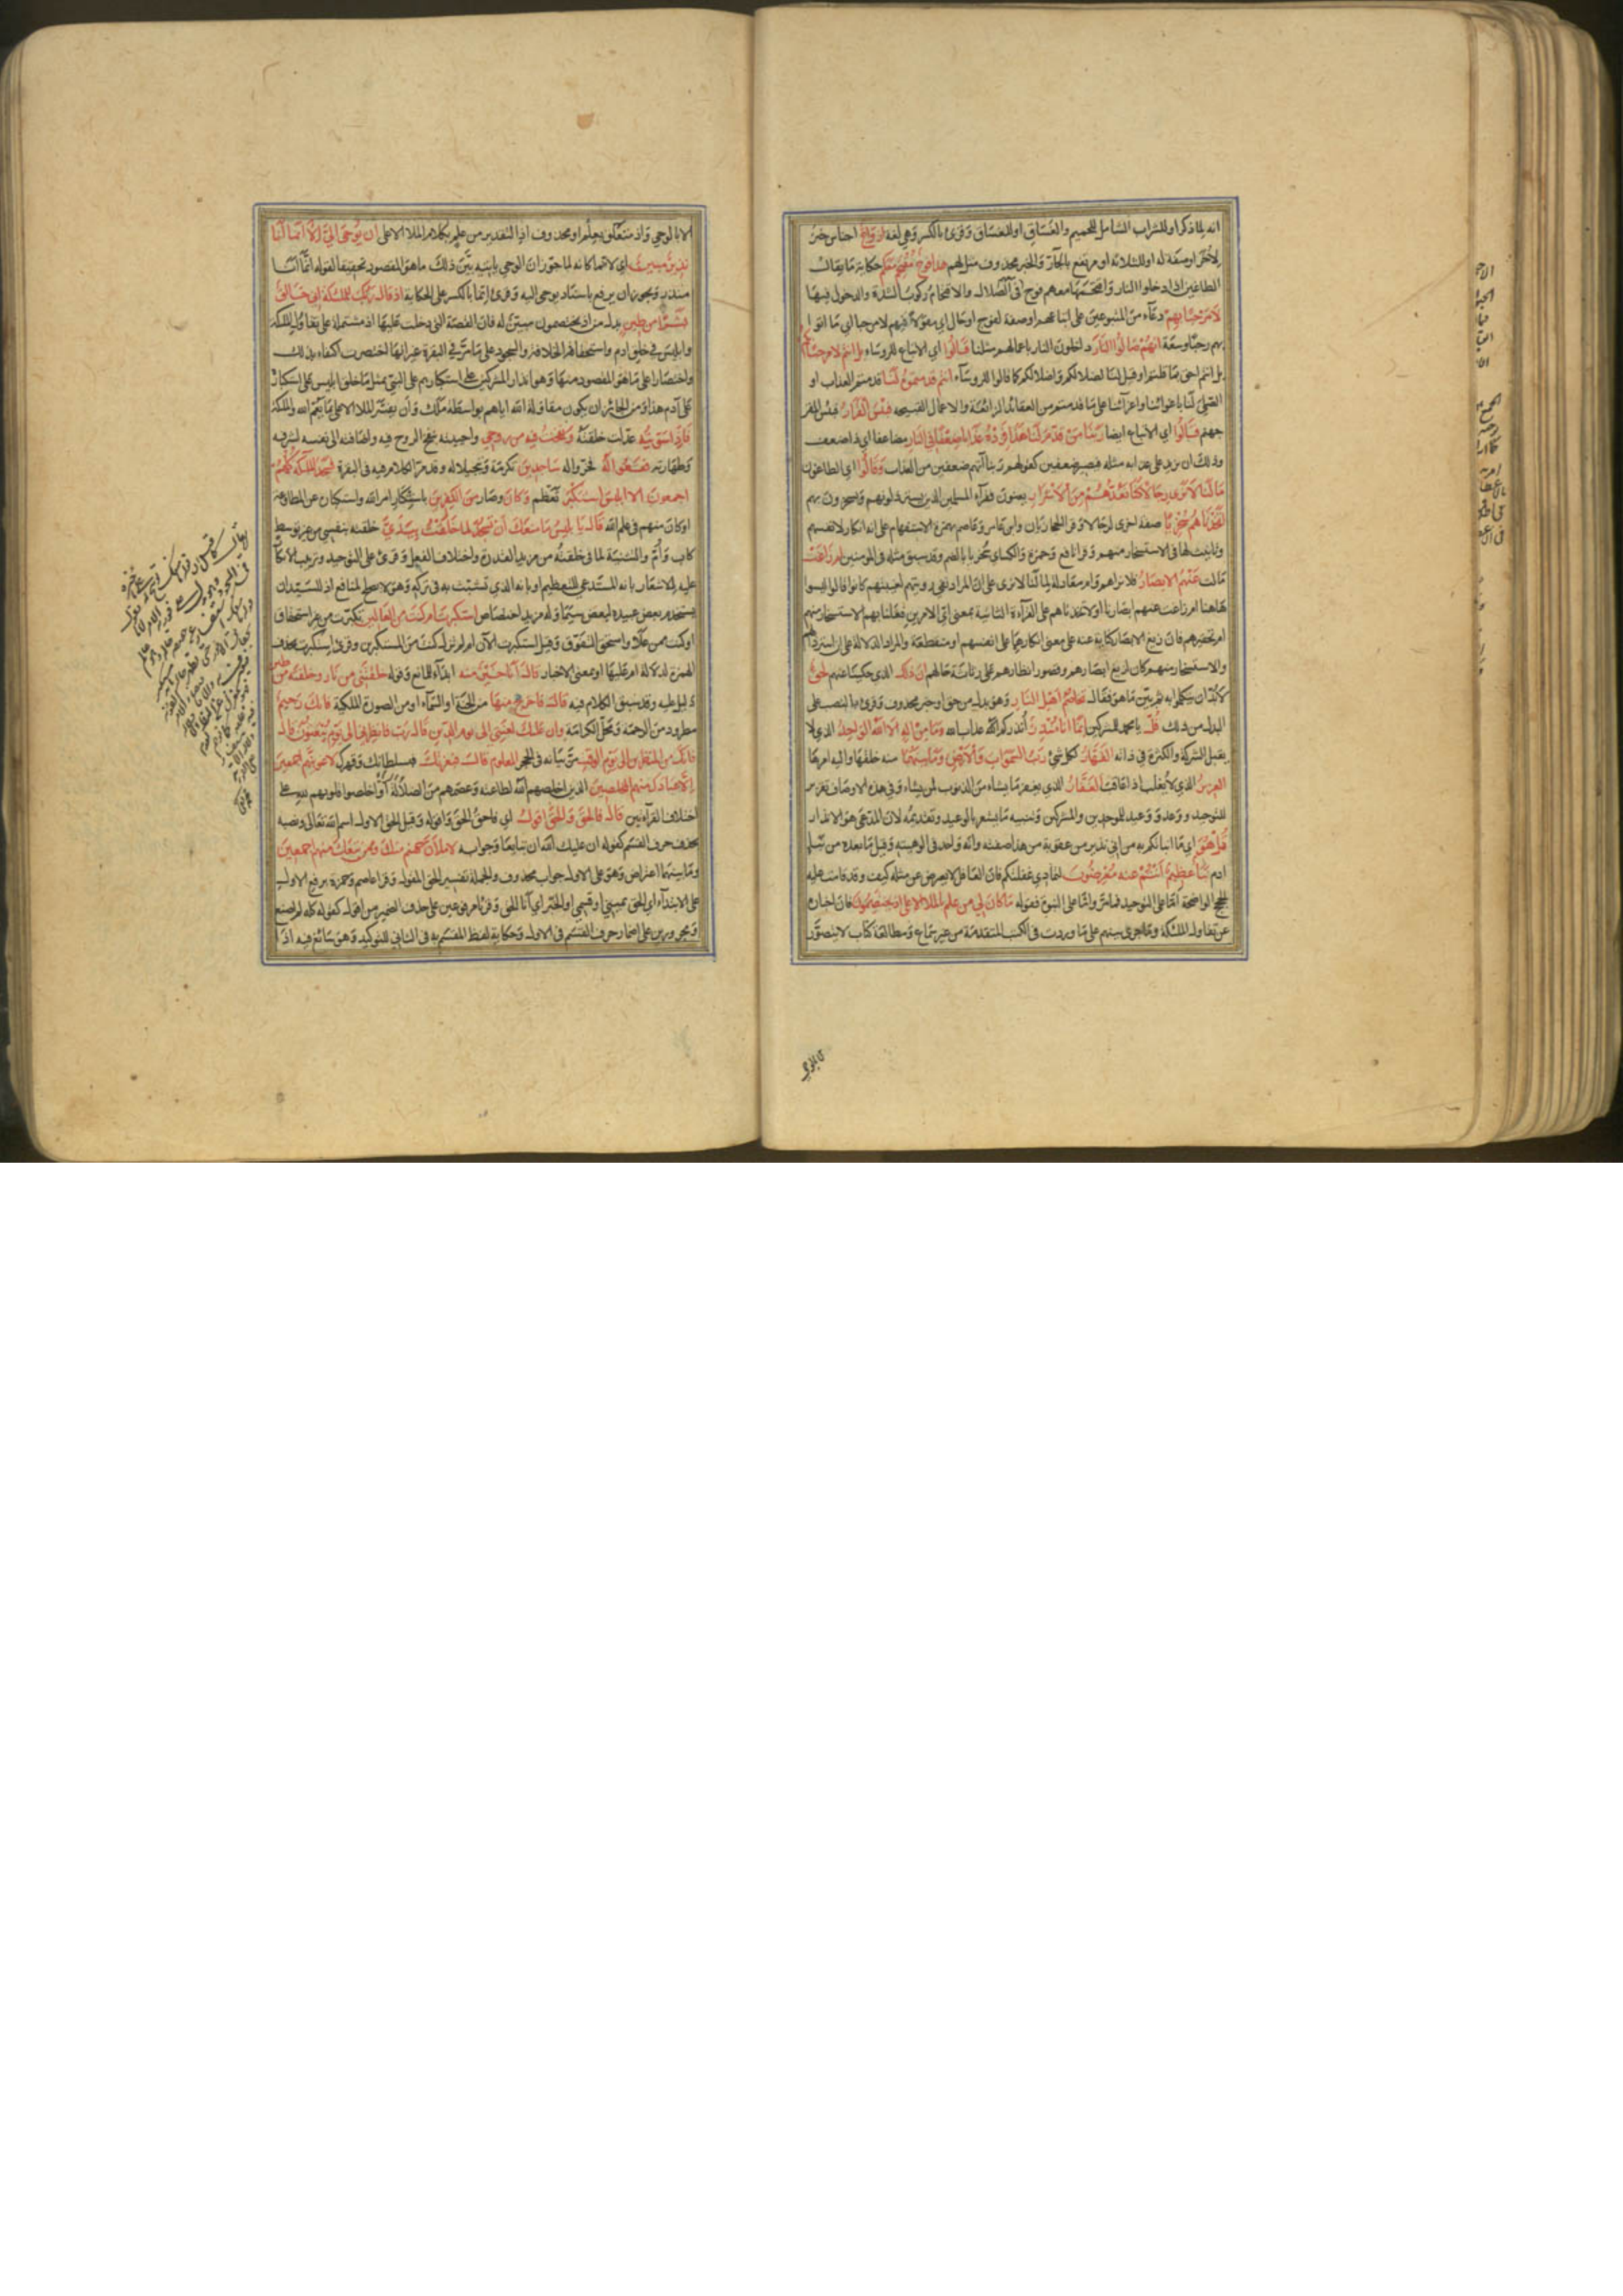 انه لما ذكر او للشراب الشامل للحميم والغساق او للغساق وقرئ بالكسر وهي لغة ازواج اجناس خبر
لآخر او صفة له او للثلاثة او مرتفع بالجار والخبر محذوف مثل لهم هذا فوج مقتحم معكم حكاية ما يقال
للطاغين اذا دخلوا النار واقتحمها معهم فوج في الضلال والاقتحام ركوب الشدة والدخول فيها
لا مرحبا بهم دعاء من المتبوعين على اتباعهم او صفة لفوج او حال اي مقولا فيهم لا مرحبا اي ما اتوا
بهم رحبا وسعة انهم صالوا النار داخلون النار باعمالهم مثلنا قالوا اي الاتباع للرؤساء بل انتم لا مرحبا بكم
بل انتم احق بما قلتم او قيل لنا لضلالكم واضلالكم كما قالوا للرؤساء انتم قدمتموه لنا قدمتم العذاب او
الصلي لنا باغوائنا واغرائنا على ما قدمتموه من العقائد الزائغة والاعمال القبيحة فبئس القرار فبئس المقر
جهنم قالوا اي الاتباع ايضا ربنا من قدم لنا هذا فزده عذابا ضعفا في النار مضاعفا اي ذا ضعف
وذلك ان يزيد على عذابه مثله فيصير ضعفين كقولهم ربنا آتهم ضعفين من العذاب وقالوا اي الطاغون
ما لنا لا نرى رجالا كنا نعدهم من الاشرار يعنون فقراء المسلمين الذين يسترذلونهم ويسخرون بهم
اتخذناهم سخريا صفة اخرى لرجالا وقرأ الحجازيان وابن عامر وعاصم بهمزة الاستفهام على انه انكار لانفسهم
وتأنيب لها في الاستسخار منهم وقرأ نافع وحمزة والكسائي سخريا بالضم وقد سبق مثله في المؤمنين ام زاغت
مالت عنهم الابصار فلا نراهم وام معادلة لما لنا لا نرى على ان المراد نفي رؤيتهم لغيبتهم كانوا قالوا ليسوا
هاهنا ام زاغت عنهم ابصارنا او لاتخذناهم على القراءة الثانية بمعنى اي الامرين فعلنا بهم الاستسخار منهم
ام تحقيرهم فان زيغ الابصار كناية عنه على معنى انكارهما على انفسهم او منقطعة والمراد الدلالة على ان استرذالهم
والاستسخار منهم كان لزيغ ابصارهم وقصور انظارهم على رثاثة حالهم ان ذلك الذي حكيناه عنهم لحق
لا بد ان يتكلموا به ثم بين ما هو فقال تخاصم اهل النار وهو بدل من حق او خبر محذوف وقرئ بالنصب على
البدل من ذلك قل يا محمد للمشركين انما انا منذر انذركم عذاب الله وما من اله الا الله الواحد الذي لا
يقبل الشركة والكثرة في ذاته القهار لكل شيء رب السموات والارض وما بينهما منه خلقها واليه امرها
العزيز الذي لا يغلب اذا عاقب الغفار الذي يغفر ما يشاء من الذنوب لمن يشاء وفي هذه الاوصاف تقرير
للتوحيد ووعد ووعيد للموحدين والمشركين وتثنية ما يشعر بالوعيد وتقديمه لان المدعو هو الانذار
قل هو اي ما انبأتكم به من اني نذير من عقوبة من هذا صفته وانه واحد في الوهيته وقيل ما بعده من نبأ
ادم نبأ عظيم انتم عنه معرضون لتمادي غفلتكم فان العاقل لا يعرض عن مثله كيف وقد قامت عليه
الحجج الواضحة اما على التوحيد فما مر واما على النبوة فقوله ما كان لي من علم بالملأ الاعلى اذ يختصمون فان اخباره
عن تقاول الملئكة وما جرى بينهم على ما وردت في الكتب المتقدمة من غير سماع ومطالعة كتاب لا يتصور
الا بالوحي
الا بالوحي واذ متعلق بعلم او محذوف اذ التقدير من علم بكلام الملا الاعلى ان يوحى الي الا انما انا
نذير مبين اي لانما كانه لما جوز ان الوحي يأتيه بين ذلك ما هو المقصود تحقيقا لقوله انما انا
منذر ويجوز ان يرفع باسناد يوحى اليه وقرئ انما بالكسر على الحكاية اذ قال ربك للملئكة اني خالق
بشرا من طين بدل من اذ يختصمون مبين له فان القصة التي دخلت عليها اذ مشتملة على تقاول الملئكة
وابليس في خلق ادم واستحقاقه الخلافة والسجود على ما مر في البقرة غير انها اختصرت اكتفاء بذلك
واختصارا على ما هو المقصود منها وهو انذار المشركين على استكبارهم على النبي بمثل ما حاق بابليس على استكباره
على آدم هذا ومن الجائز ان يكون مقاولة الله اياهم بواسطة ملك وان يفسر الملا الاعلى بما يعم الله والملئكة
فاذا سويته عدلت خلقته ونفخت فيه من روحي واحييته بنفخ الروح فيه واضافته الى نفسه لشرفه
وطهارته فقعوا له فخروا له ساجدين تكرمة وتبجيلا له وقد مر الكلام فيه في البقرة فسجد الملئكة كلهم
اجمعون الا ابليس استكبر تعظم وكان وصار من الكفرين باستنكاره امر الله واستكباره عن المطاوعة
او كان منهم في علم الله قال يا ابليس ما منعك ان تسجد لما خلقت بيدي خلقته بنفسي من غير توسط
كاب وام والتثنية لما في خلقته من مزيد القدرة واختلاف الفعل وقرئ على التوحيد وترتيب الانكار
عليه للاشعار بانه المستدعي للتعظيم او بانه الذي تشبث به في تركه وهو لا يصلح لمانع اذ للسيد ان
يستخدم بعض عبيده لبعض سيما وله مزيد اختصاص استكبرت ام كنت من العالين تكبرت من غير استحقاق
او كنت ممن علا واستحق التفوق وقيل استكبرت الآن ام لم تزل كنت من المستكبرين وقرئ استكبرت بحذف
الهمزة لدلالة ام عليها او بمعنى الاخبار قال انا خير منه ابداء للمانع وقوله خلقتني من نار وخلقته من طين
دليل عليه وقد سبق الكلام فيه قال فاخرج منها من الجنة او السماء او من الصورة الملكية فانك رجيم
مطرود من الرحمة ومحل الكرامة وان عليك لعنتي الى يوم الدين قال رب فانظرني الى يوم يبعثون قال
فانك من المنظرين الى يوم الوقت المعلوم مر بيانه في الحجر قال فبعزتك فبسلطانك وقهرك لاغوينهم اجمعين
الا عبادك منهم المخلصين الذين اخلصهم الله لطاعته وعصمهم من الضلالة او اخلصوا قلوبهم لله على
اختلاف القراءتين قال فالحق والحق اقول اي فاحق الحق واقوله وقيل الحق الاول اسم الله تعالى ونصبه
بحذف حرف القسم كقوله ان عليك الله ان تبايعا وجوابه لاملأن جهنم منك وممن تبعك منهم اجمعين
وما بينهما اعتراض وهو على الاول جواب محذوف والجملة تفسير للحق المقول وقرأ عاصم وحمزة برفع الاول
على الابتداء اي الحق يميني او قسمي او الخبر اي انا الحق وقرئا مرفوعين على حذف الضمير من اقول كقوله كله لم اصنع
ومجرورين على اضمار حرف القسم في الاول وحكاية لفظ المقسم به في الثاني للتوكيد وهو سائغ فيه اذا